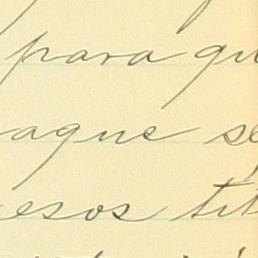 para qu
aque se
esos tit